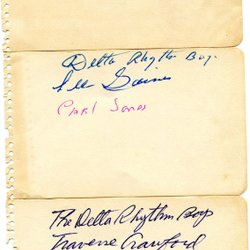 Delta Rhythm Boys
Lee Gaines
Carl Jones
The Delta Rhythm Boys
Traverse Crawford